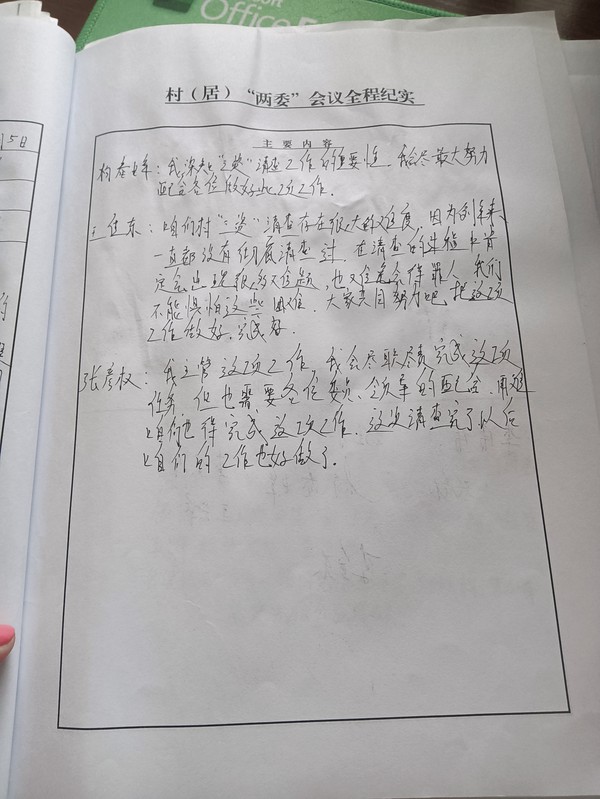 Office
15日
村（居）“两委”会议全程纪实
主要内容
我深知“三资”清查工作的重要性，我会尽最大努力
配合各位做好此项工作。
王佳东：咱们村“三资”清查存在很大难度，因为到未来
一直都没有彻底清查过，在清查的过程中肯
定会出现很多问题，也又会得罪人，我们
不能惧怕这些困难，大家共同努力吧，把这项
工作做好，完成好。
张彦权：我主管这项工作，我会尽职尽责完成这项
任务，但也需要各位委员、领导的配合，再难
咱们也得完成这项工作，这次清查完了以后
咱们的工作也好做了。